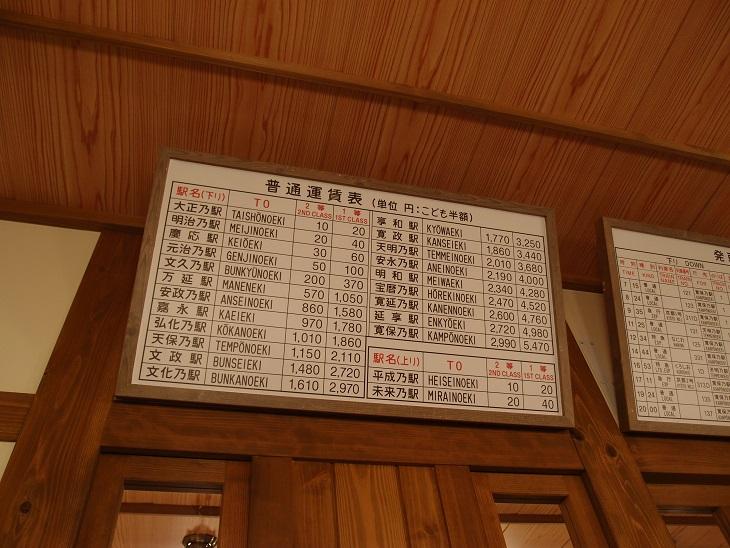 普通運賃表 (単位 円:こども半額)
駅名(下り) TO 2等 2ND CLASS 1等 1ST CLASS
大正乃駅 TAISHŌNOEKI 10 20
明治乃駅 MEIJINOEKI 20 40
慶応駅 KEIŌEKI 30 60
元治乃駅 GENJINOEKI 50 100
文久乃駅 BUNKYŪNOEKI 200 370
万延駅 MANENEKI 570 1,050
安政乃駅 ANSEINOEKI 860 1,580
嘉永駅 KAEIEKI 970 1,780
弘化乃駅 KŌKANOEKI 1,010 1,860
天保乃駅 TEMPŌNOEKI 1,150 2,110
文政駅 BUNSEIEKI 1,480 2,720
文化乃駅 BUNKANOEKI 1,610 2,970
享和駅 KYŌWAEKI 1,770 3,250
寛政駅 KANSEIEKI 1,860 3,440
天明乃駅 TEMMEINOEKI 2,010 3,680
安永乃駅 ANEINOEKI 2,190 4,000
明和駅 MEIWAEKI 2,340 4,280
宝暦乃駅 HŌREKINOEKI 2,470 4,520
寛延乃駅 KANENNOEKI 2,600 4,760
延享駅 ENKYŌEKI 2,720 4,980
寛保乃駅 KAMPŌNOEKI 2,990 5,470
駅名(上り) TO 2等 2ND CLASS 1等 1ST CLASS
平成乃駅 HEISEINOEKI 10 20
未来乃駅 MIRAINOEKI 20 40
発
下り DOWN
TIME